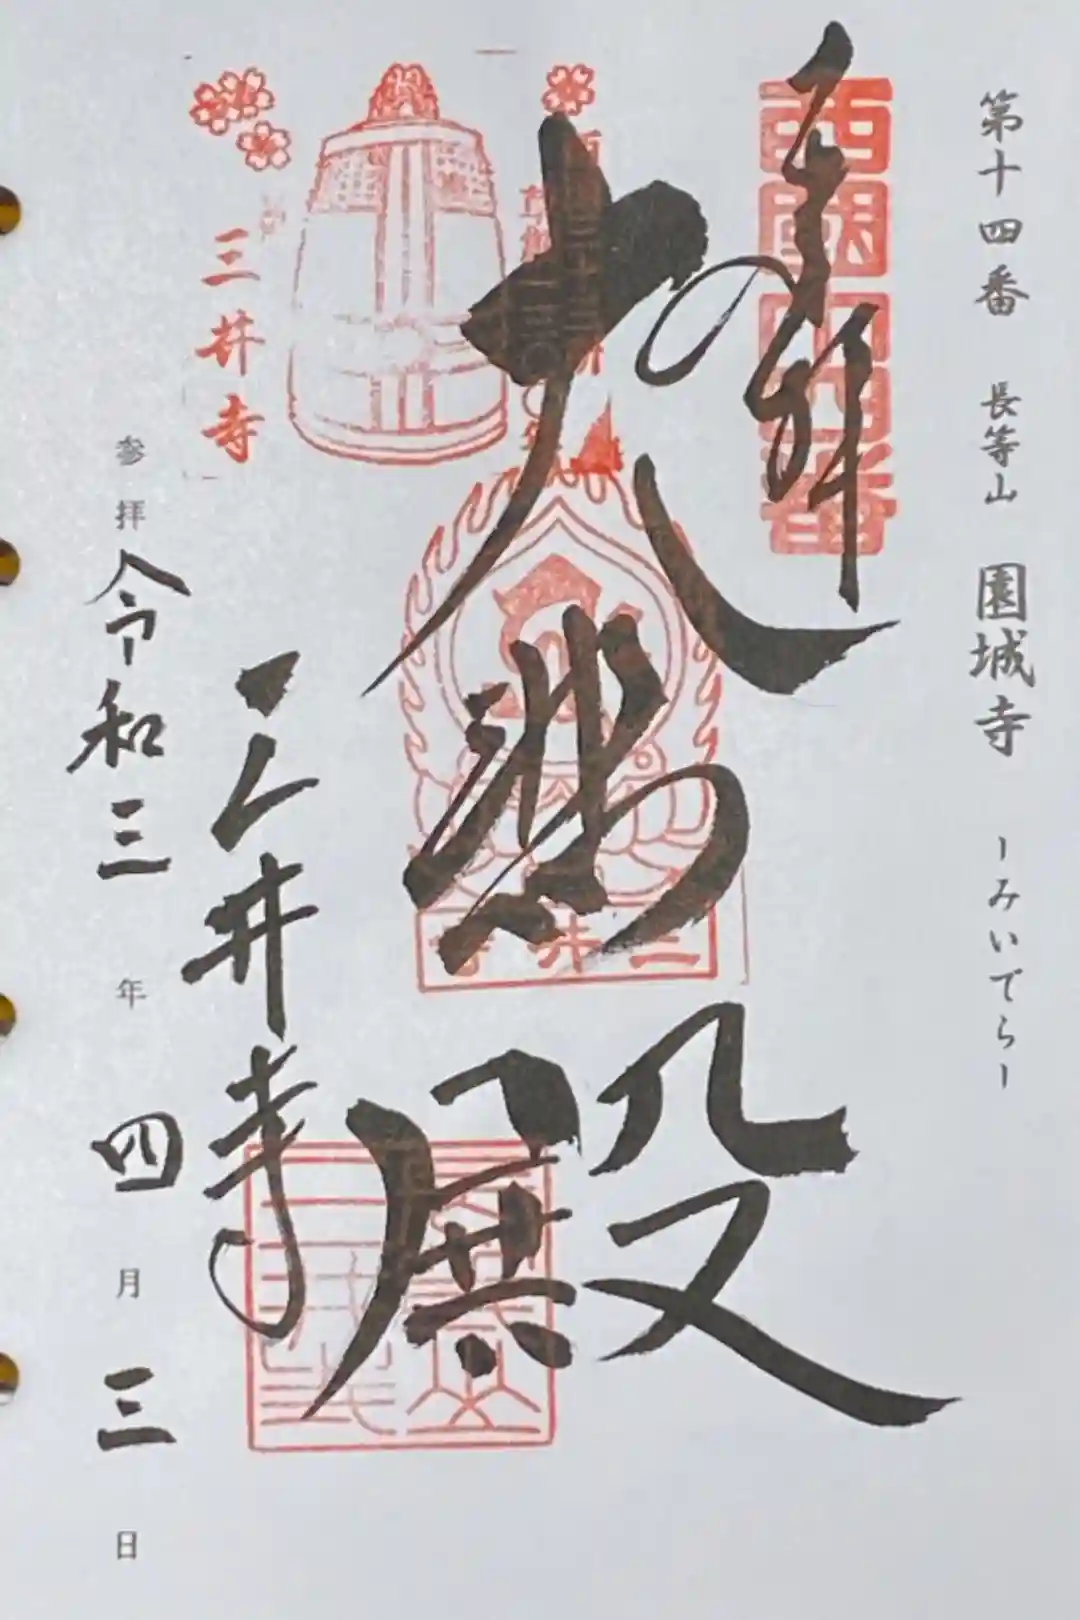 第十四番 長等山 園城寺 -みいでら-
奉拝
西国十四番
大悲殿
三井寺
三井寺
三井寺
参拝 令和三年四月三日